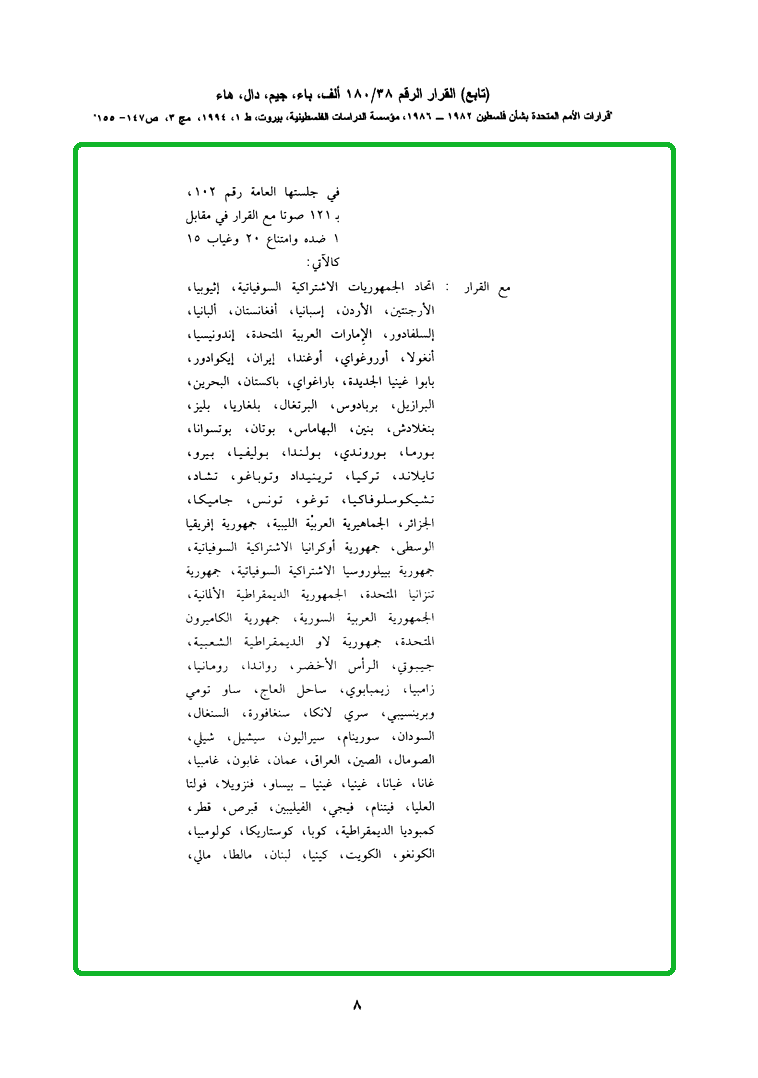 (تابع) القرار الرقم ١٨٠/٣٨ ألف، باء، جيم، دال، هاء
"قرارات الأمم المتحدة بشأن فلسطين ١٩٨٢ ــ ١٩٨٦، مؤسسة الدراسات الفلسطينية، بيروت، ط ١، ١٩٩٤، مج ٣، ص١٤٧- ١٥٥"
في جلستها العامة رقم ١٠٢،
بـ ١٢١ صوتا مع القرار في مقابل
١ ضده وامتناع ٢٠ وغياب ١٥
كالآتي:
مع القرار : اتحاد الجمهوريات الاشتراكية السوفياتية، إثيوبيا،
الأرجنتين، الأردن، إسبانيا، أفغانستان، ألبانيا،
إلسلفادور، الإمارات العربية المتحدة، إندونيسيا،
أنغولا، أوروغواي، أوغندا، إيران، إيكوادور،
بابوا غينيا الجديدة، باراغواي، باكستان، البحرين،
البرازيل، بربادوس، البرتغال، بلغاريا، بليز،
بنغلادش، بنين، البهاماس، بوتان، بوتسوانا،
بورما، بوروندي، بولندا، بوليفيا، بيرو،
تايلاند، تركيا، ترينيداد وتوباغو، تشاد،
تشيكوسلوفاكيا، توغو، تونس، جاميكا،
الجزائر، الجماهيرية العربيّة الليبية، جمهورية إفريقيا
الوسطى، جمهورية أوكرانيا الاشتراكية السوفياتية،
جمهورية بييلوروسيا الاشتراكية السوفياتية، جمهورية
تنزانيا المتحدة، الجمهورية الديمقراطية الألمانية،
الجمهورية العربية السورية، جمهورية الكاميرون
المتحدة، جمهورية لاو الديمقراطية الشعبية،
جيبوتي، الرأس الأخضر، رواندا، رومانيا،
زامبيا، زيمبابوي، ساحل العاج، ساو تومي
وبرينسيبي، سري لانكا، سنغافورة، السنغال،
السودان، سورينام، سيراليون، سيشيل، شيلي،
الصومال، الصين، العراق، عمان، غابون، غامبيا،
غانا، غيانا، غينيا، غينيا ــ بيساو، فنزويلا، فولتا
العليا، فيتنام، فيجي، الفيليبين، قبرص، قطر،
كمبوديا الديمقراطية، كوبا، كوستاريكا، كولومبيا،
الكونغو، الكويت، كينيا، لبنان، مالطا، مالي،
٨